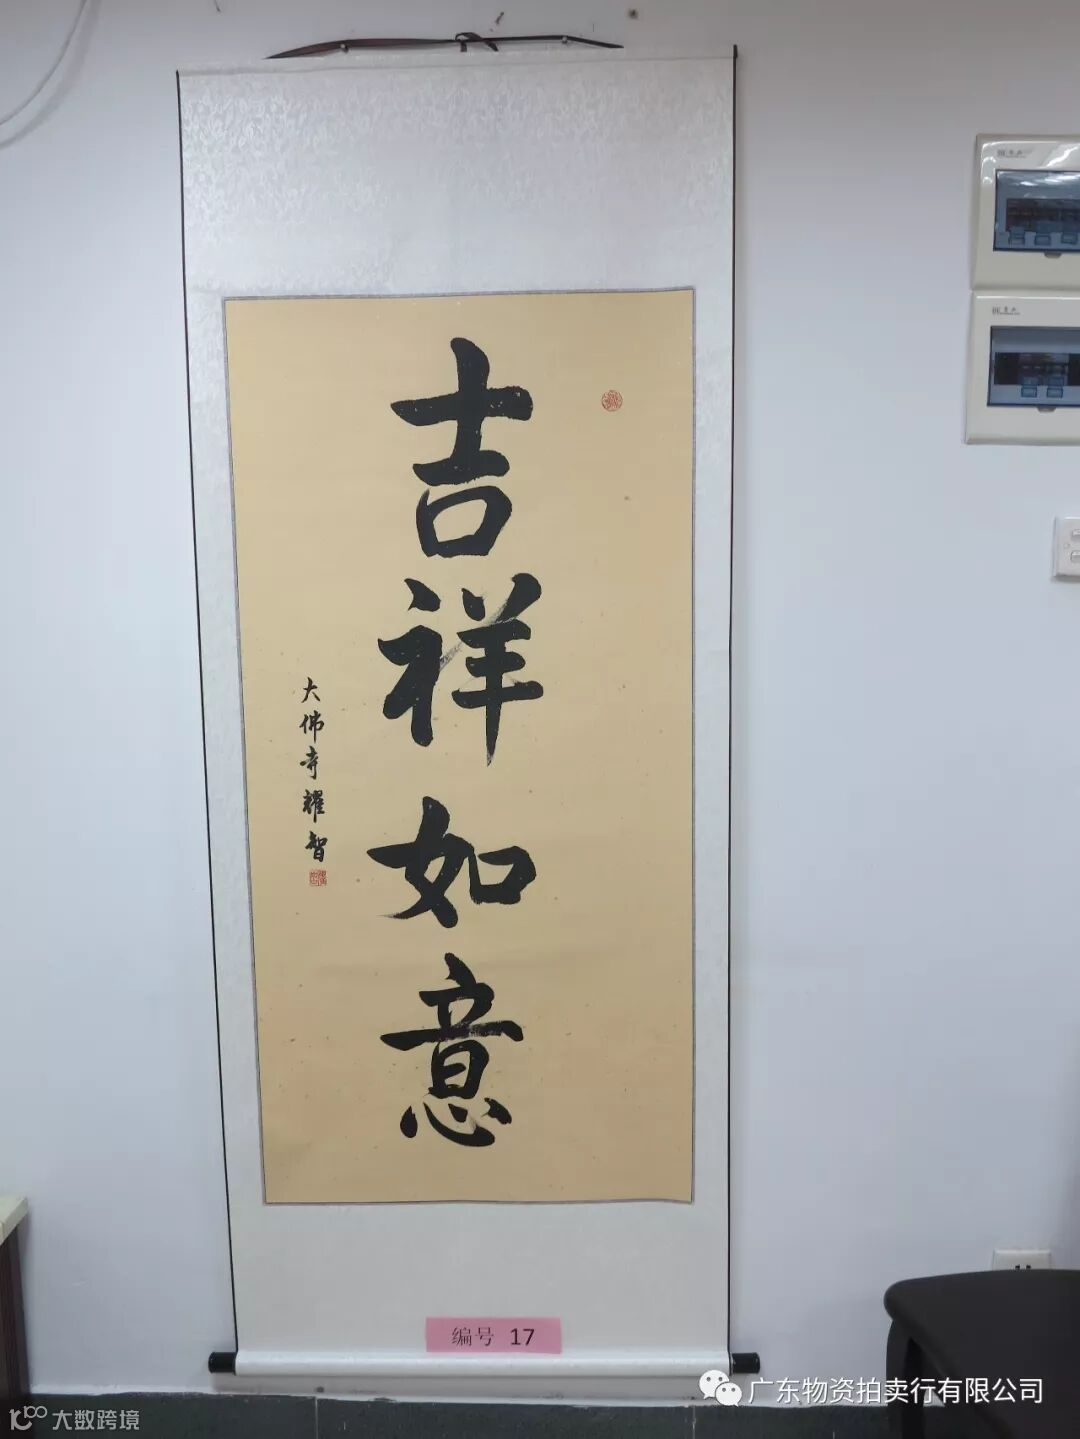 吉祥如意
大佛寺耀智
编号 17
广东物资拍卖行有限公司
大数跨境